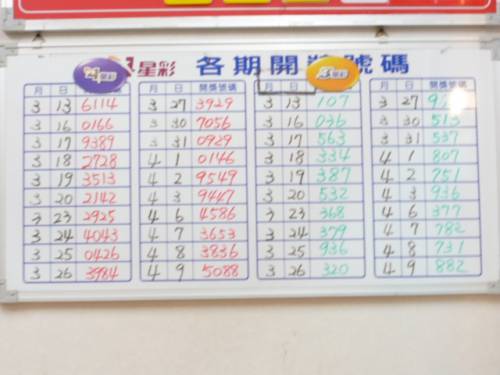 星彩 各期開獎號碼
月 日 月 日 開獎號碼 月 日 月 日 開獎號碼
3 13 6114 3 27 3929 3 13 107 3 27
3 16 0166 3 30 7056 3 16 036 3 30 513
3 17 9389 3 31 0929 3 17 563 3 31 537
3 18 2728 4 1 0146 3 18 334 4 1 807
3 19 3513 4 2 9549 3 19 387 4 2 751
3 20 2142 4 3 9447 3 20 532 4 3 936
3 23 2925 4 6 4586 3 23 368 4 6 377
3 24 4043 4 7 3653 3 24 379 4 7 782
3 25 0426 4 8 3836 3 25 936 4 8 731
3 26 3984 4 9 5088 3 26 320 4 9 882